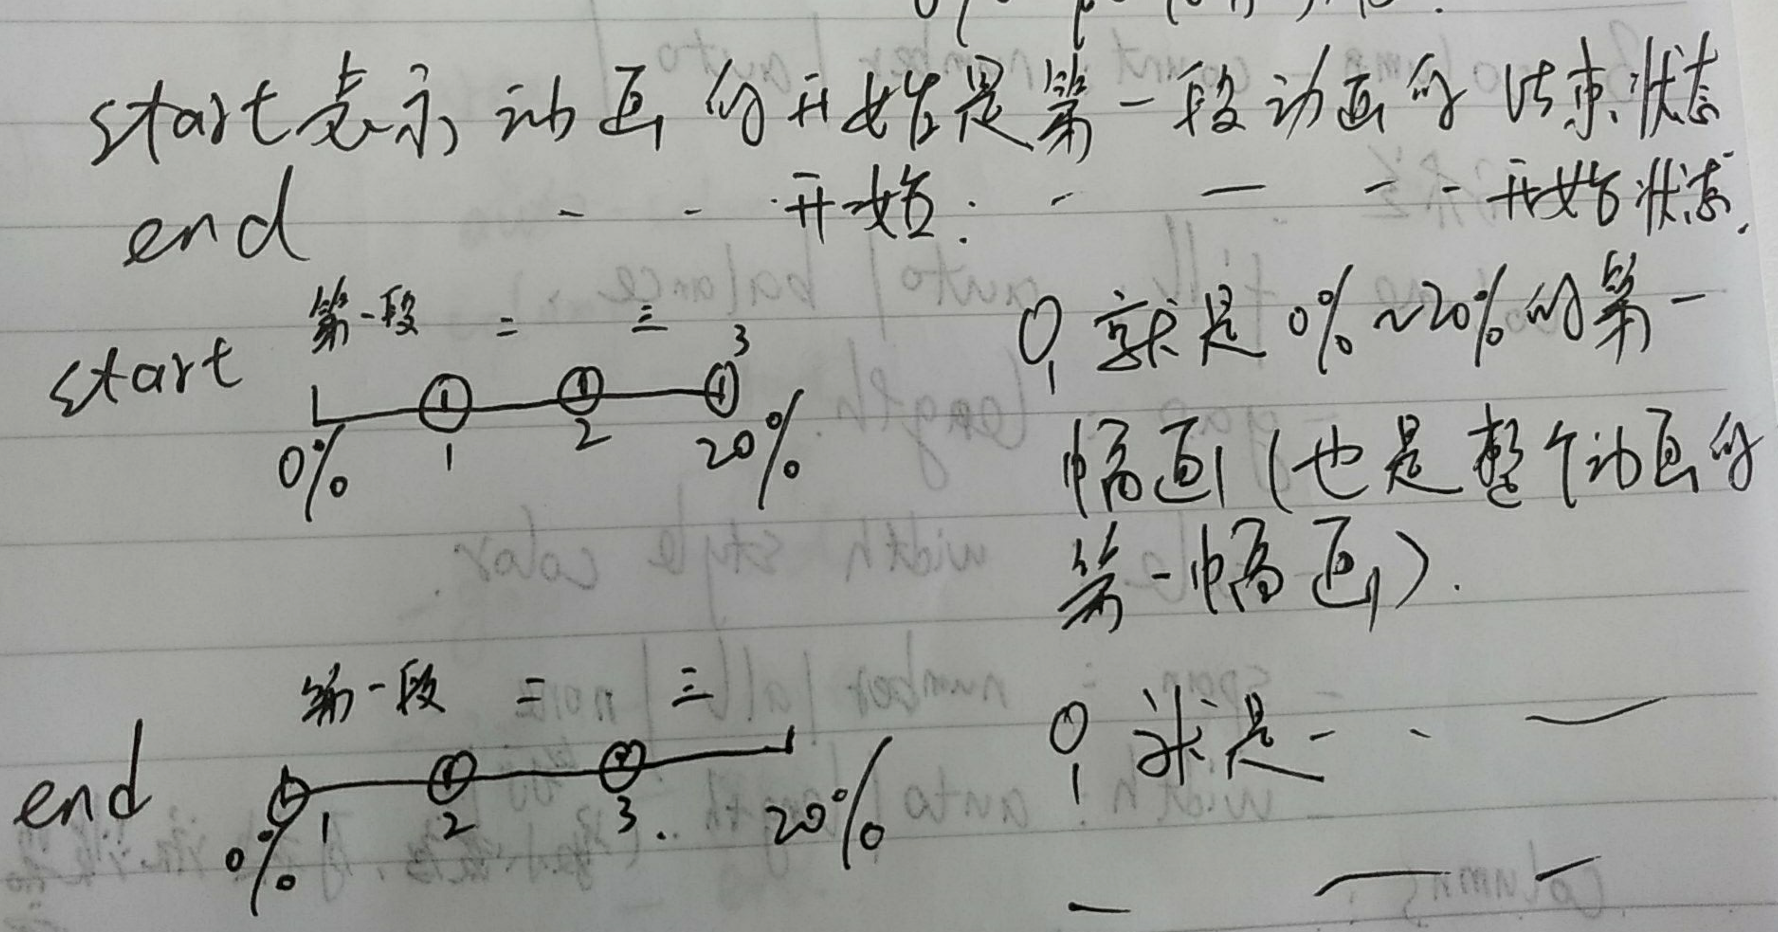 start表示动画的开始是第一段动画的结束状态
end - - 开始. - — - - 开始状态.
第一段 二 三 3
start
0% 1 2 20%
① 就是0%~20%的第一
幅画(也是整个动画的
第一幅画).
第一段 二 三
end
0% 1 2 3. 20%
就是- - —
— — —